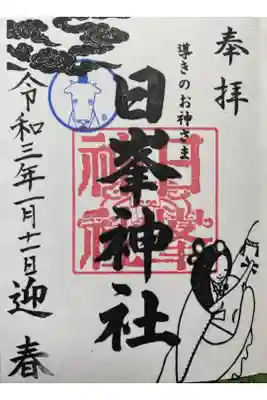 奉拝
導きのお神さま
日峯神社
日峯神社
令和三年一月十一日迎春